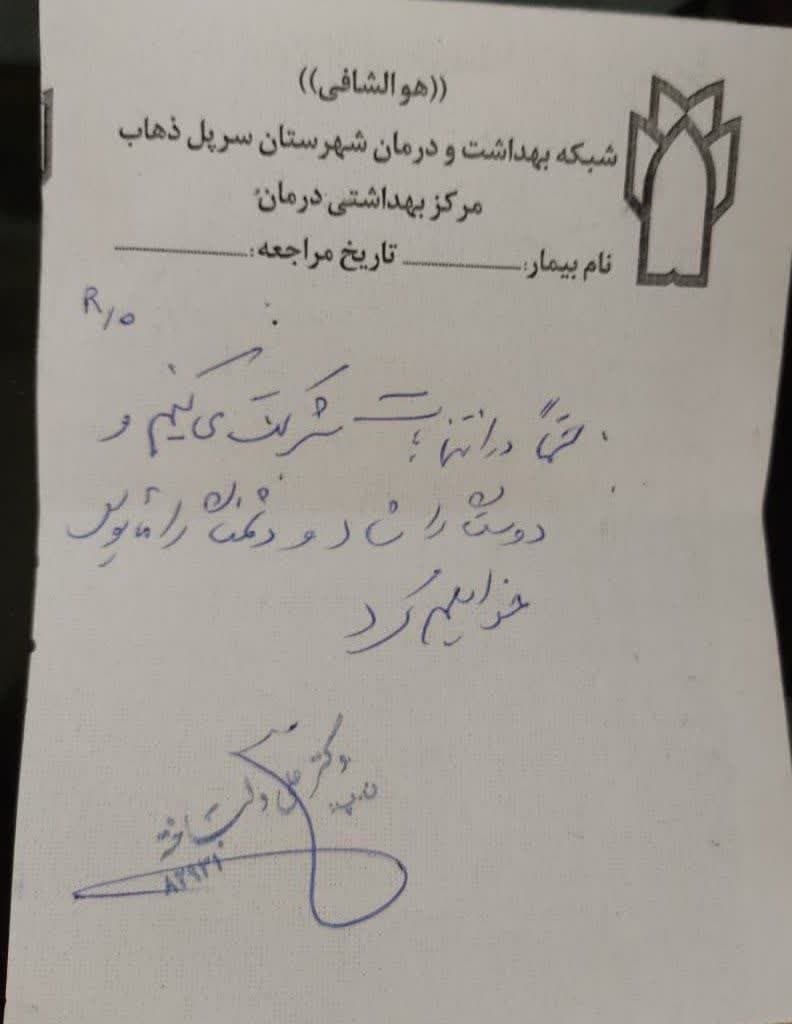 ((هو الشافی))
شبکه بهداشت و درمان شهرستان سرپل ذهاب
مرکز بهداشتی درمان
نام بیمار: تاریخ مراجعه:
R/o
حتماً در انتخابات شرکت می کنیم و
دوستان را شاد و دشمنان را مأیوس
خواهیم کرد
دکتر علی
۸۲۹۳۱